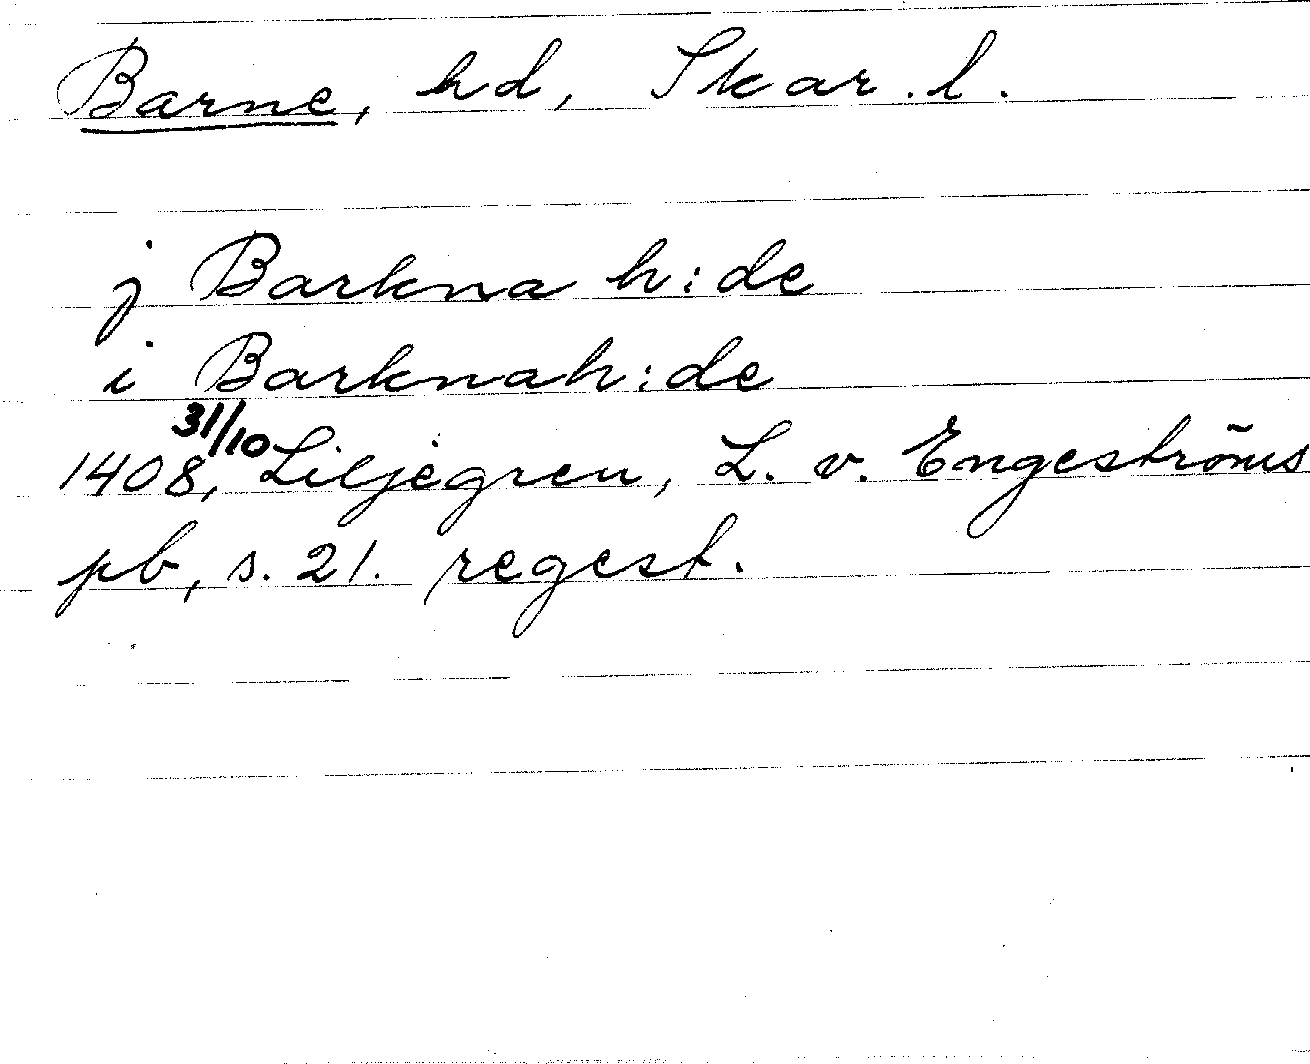 Barne, hd, Skar. l.
j Barkna h:de
i Barknah:de
31/10
1408, Liljegren, L. v. Engeströms
pb, s. 21. regest.